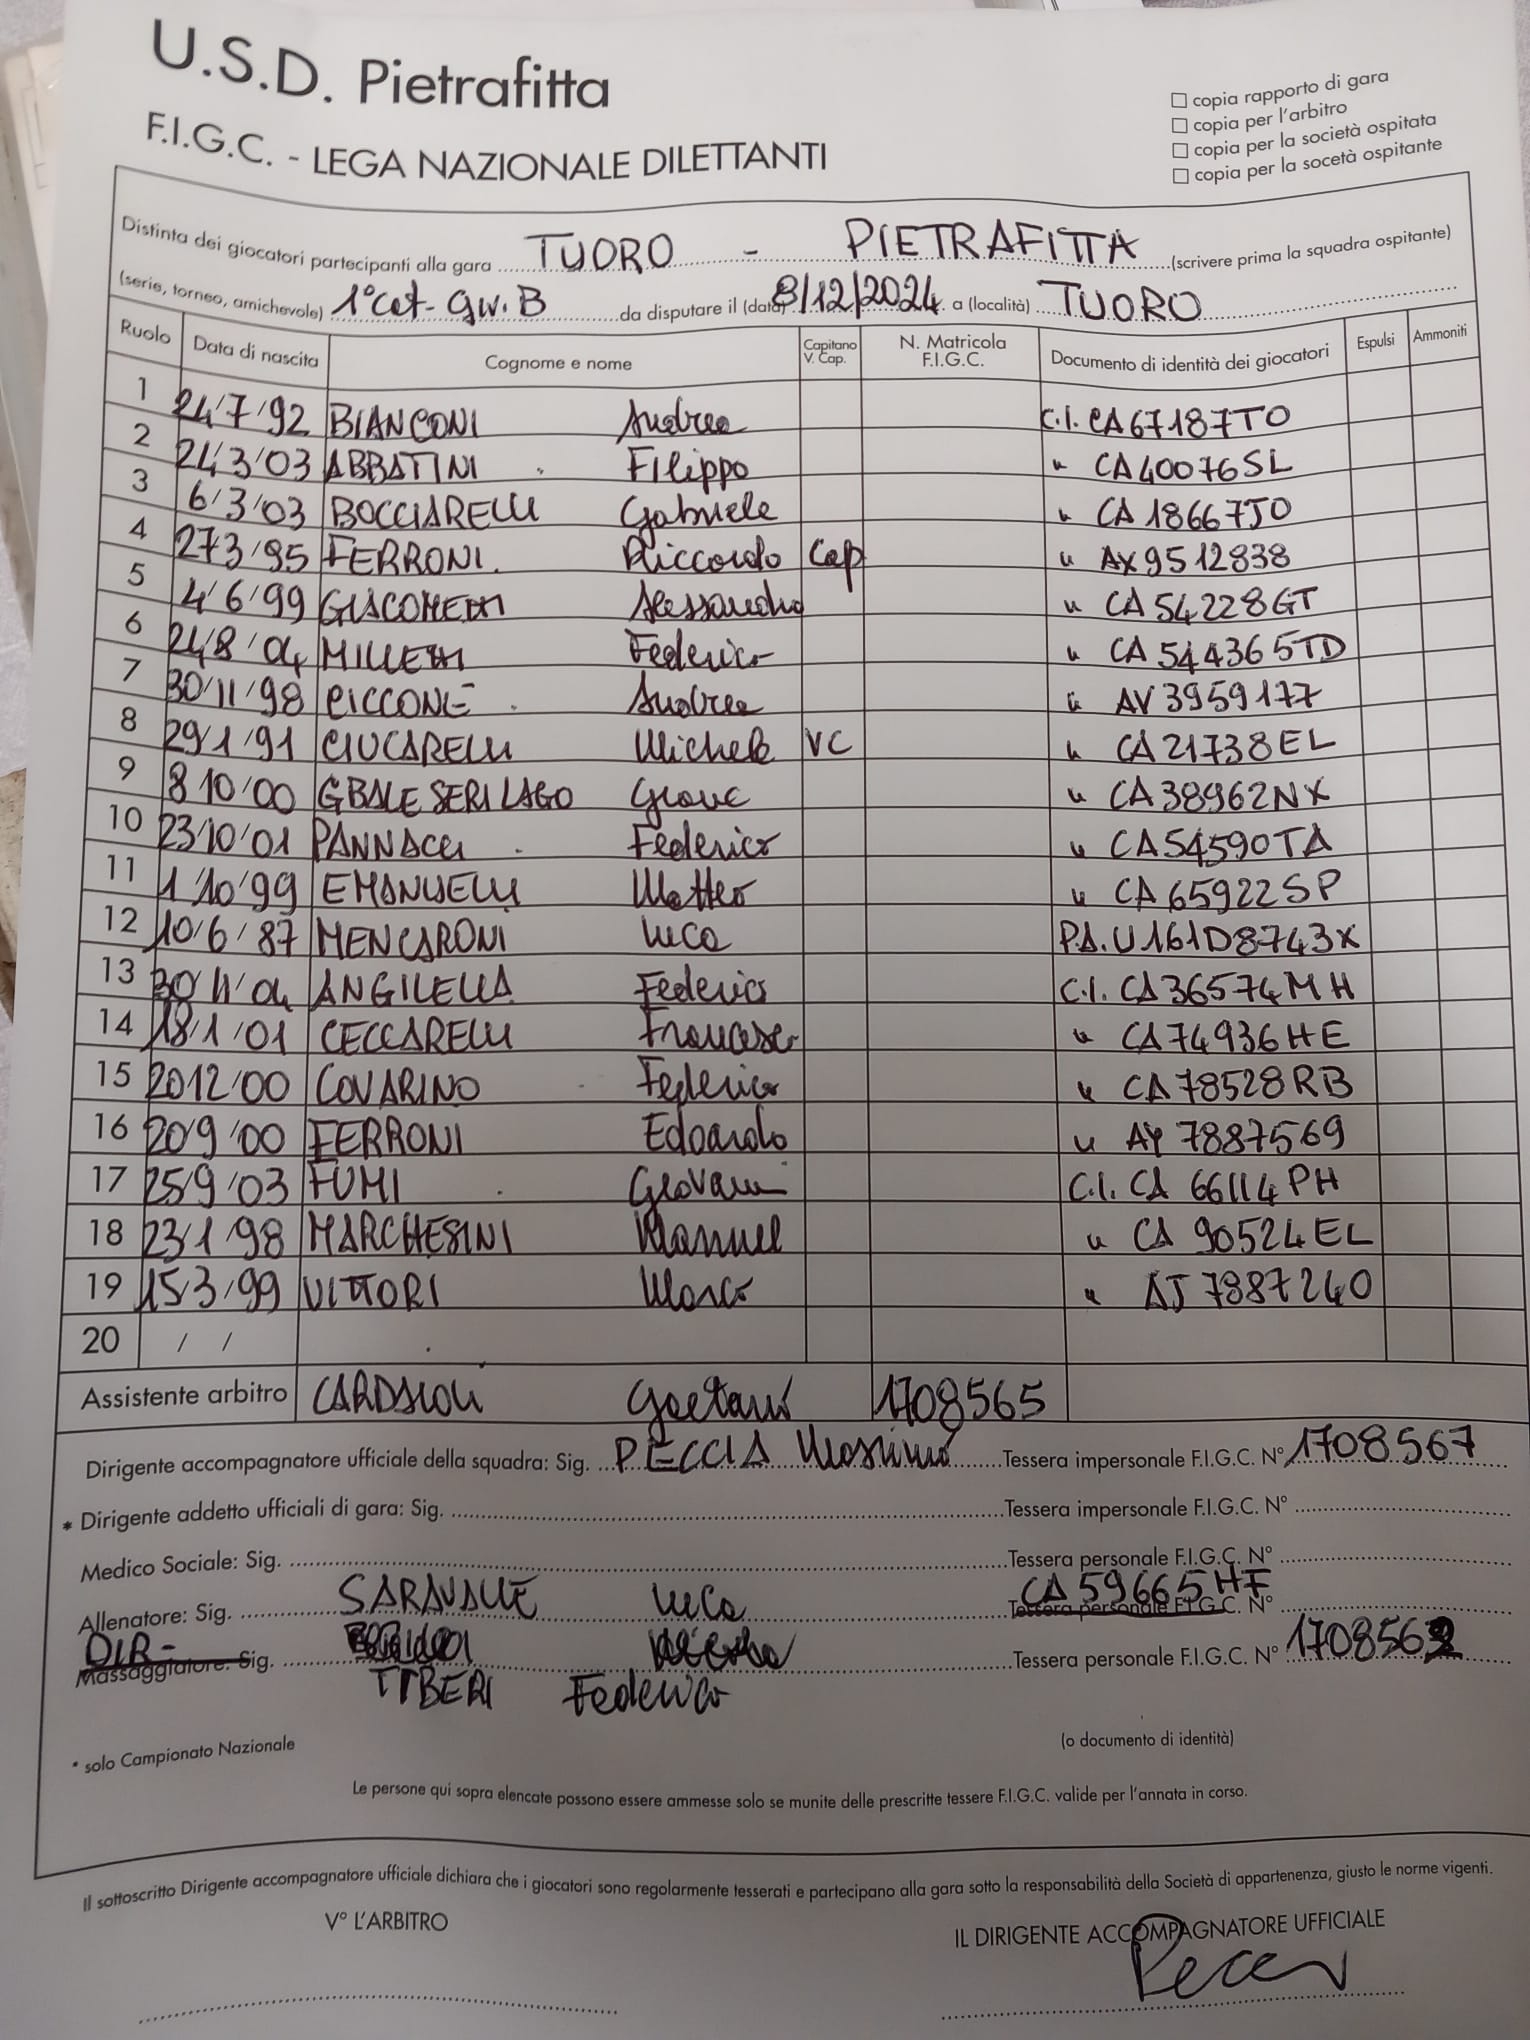 U.S.D. Pietrafitta
F.I.G.C. - LEGA NAZIONALE DILETTANTI
copia rapporto di gara
copia per l'arbitro
copia per la società ospitata
copia per la socetà ospitante
Distinta dei giocatori partecipanti alla gara TUORO - PIETRAFITTA (scrivere prima la squadra ospitante)
(serie, torneo, amichevole) 1° cat- Gir. B da disputare il (data) 8/12/2024 a (località) TUORO
Ruolo Data di nascita Cognome e nome Capitano V. Cap. N. Matricola F.I.G.C. Documento di identità dei giocatori Espulsi Ammoniti
1 24/7/92 BIANCONI Andrea C.I. CA67187TO
2 24/3/03 ABBATINI Filippo " CA40076SL
3 6/3/03 BOCCIARELLI Gabriele " CA18667JO
4 27/3/95 FERRONI Riccardo Cap " AX9512838
5 4/6/99 GIACOMETTI Alessandro " CA54228GT
6 24/8/04 MILLETTI Federico " CA544365TD
7 30/11/98 PICCONE Andrea " AV3959177
8 29/1/91 CIUCARELLI Michele VC " CA21738EL
9 8/10/00 GBALE SERI LAGO " CA38962NX
10 23/10/01 PANNACCI Federico " CA54590TA
11 1/10/99 EMANUELLI Matteo " CA65922SP
12 10/6/87 MENCARONI Luca P.A. U161D8743X
13 30/11/04 ANGILELLA Federico C.I. CA36574MH
14 18/1/01 CECCARELLI Francesco " CA74936HE
15 20/12/00 COVARINO Federico " CA78528RB
16 20/9/00 FERRONI Edoardo " AY 7887569
17 25/9/03 FUMI Giovanni C.I. CA 66114PH
18 23/1/98 MARCHESINI Manuel " CA 90524EL
19 15/3/99 VITTORI Marco " AJ 7887240
20 / /
Assistente arbitro CARDAIOLI Gaetano 1708565
Dirigente accompagnatore ufficiale della squadra: Sig. PECCIA Massimo Tessera impersonale F.I.G.C. N° 1708567
* Dirigente addetto ufficiali di gara: Sig. Tessera impersonale F.I.G.C. N°
Medico Sociale: Sig. Tessera personale F.I.G.C. N°
Allenatore: Sig. SARAVALLE Luca Tessera personale F.I.G.C. N° CA59665HF
DIR- Massaggiatore: Sig. Tessera personale F.I.G.C. N° 1708562
TIBERI Federico
* solo Campionato Nazionale (o documento di identità)
Le persone qui sopra elencate possono essere ammesse solo se munite delle prescritte tessere F.I.G.C. valide per l'annata in corso.
Il sottoscritto Dirigente accompagnatore ufficiale dichiara che i giocatori sono regolarmente tesserati e partecipano alla gara sotto la responsabilità della Società di appartenenza, giusto le norme vigenti.
V° L'ARBITRO IL DIRIGENTE ACCOMPAGNATORE UFFICIALE